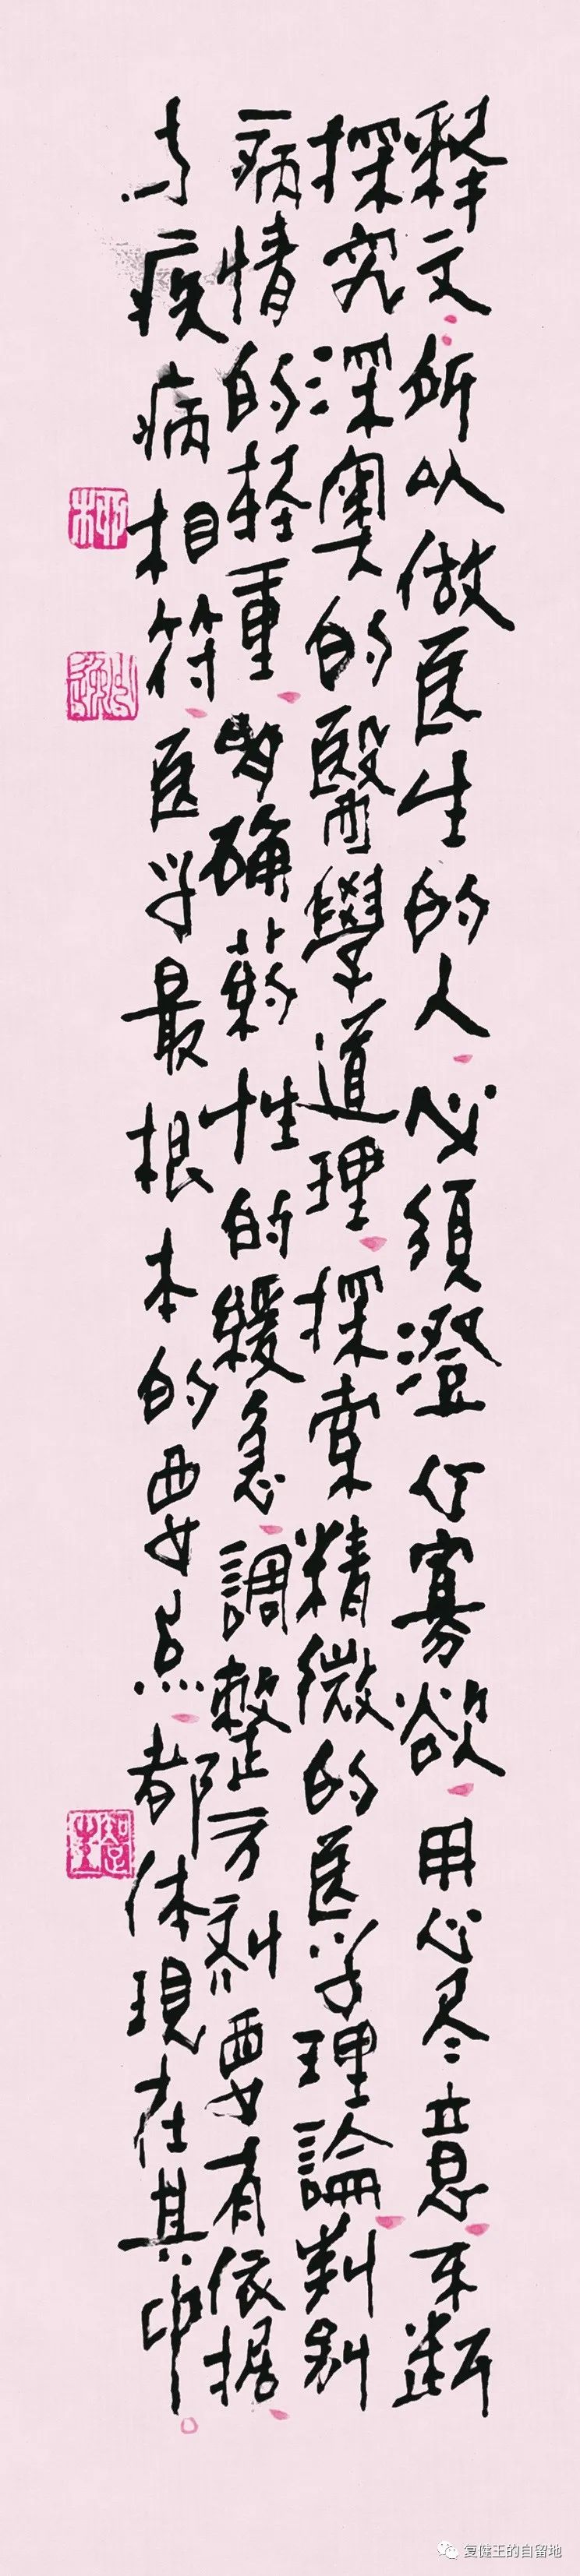 释文：所以做医生的人，必須澄心寡欲，用心尽意，不断
探究深奥的醫學道理，探索精微的医学理論，判别
病情的轻重，明确葯性的緩急，調整方剂要有依据，
与疾病相符，医学最根本的要点，都体現在其中。
复健王的自留地